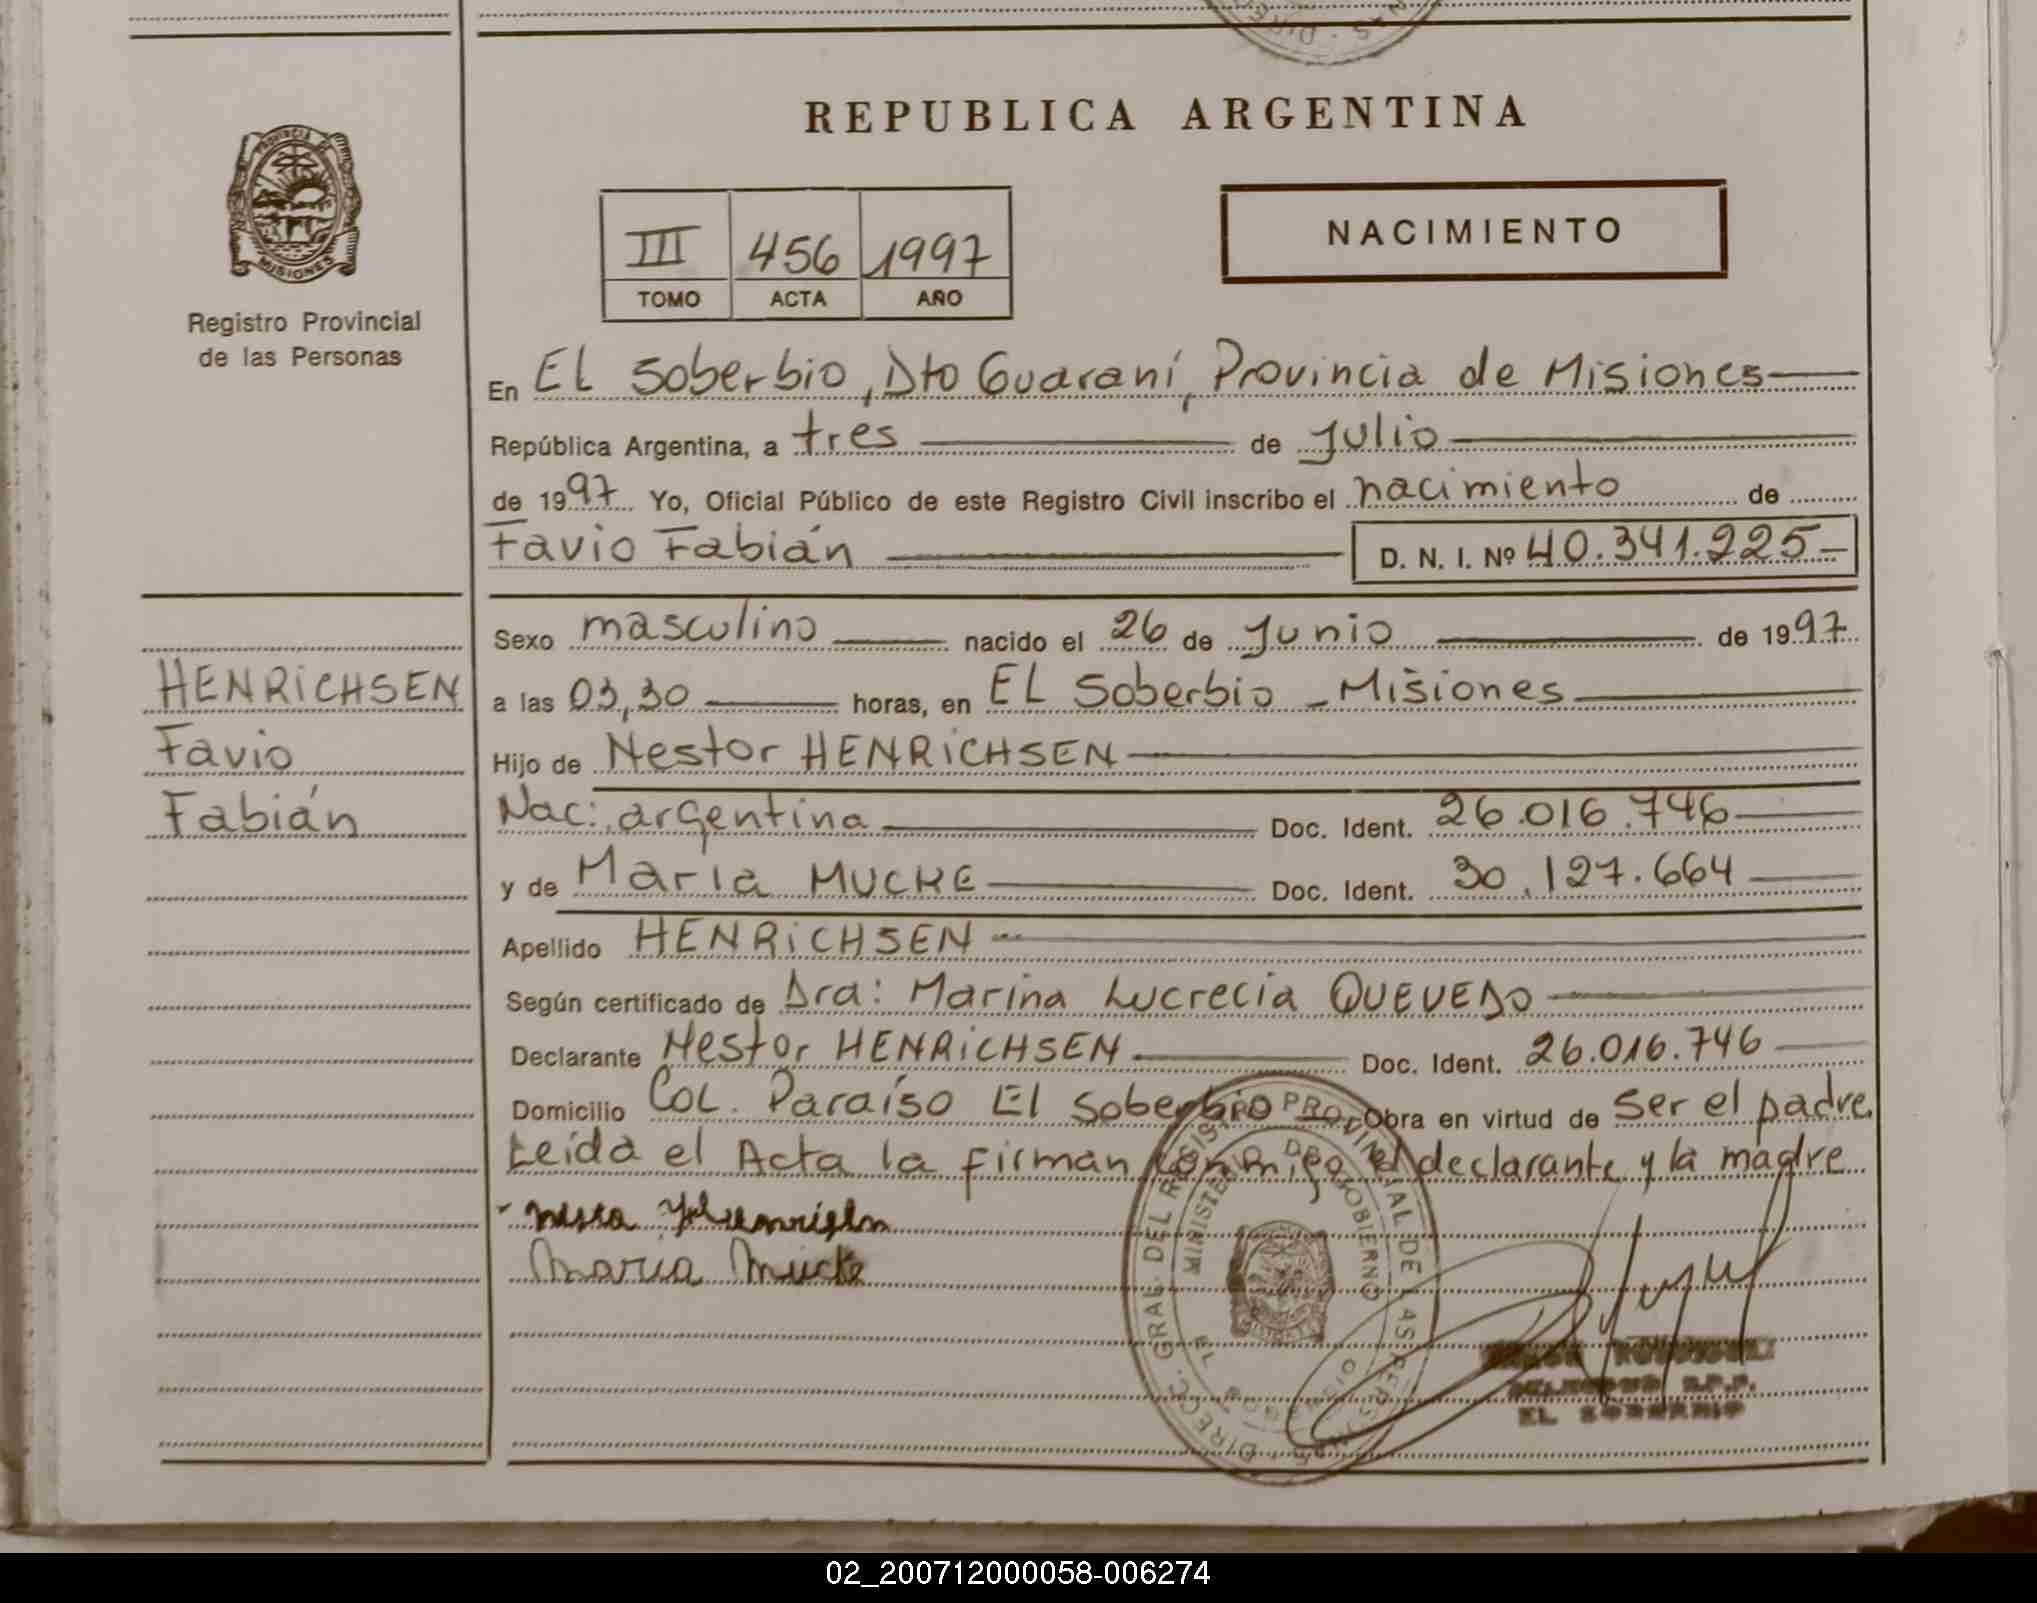 REPUBLICA ARGENTINA
PROVINCIA DE
MISIONES
Registro Provincial
de las Personas
III 456 1997
TOMO ACTA AÑO
NACIMIENTO
En EL Soberbio, Dto Guaraní, Provincia de Misiones
República Argentina, a tres de Julio
de 1997 Yo, Oficial Público de este Registro Civil inscribo el nacimiento de
Favio Fabián D. N. I. Nº 40.341.225
HENRICHSEN
Favio
Fabián
Sexo masculino nacido el 26 de Junio de 1997
a las 03,30 horas, en EL Soberbio - Misiones
Hijo de Nestor HENRICHSEN
Nac: argentina Doc. Ident. 26.016.746
y de Maria MUCKE Doc. Ident. 30.127.664
Apellido HENRICHSEN
Según certificado de Dra: Marina Lucrecia QUEVEDO
Declarante Nestor HENRICHSEN Doc. Ident. 26.016.746
Domicilio Col. Paraíso El Soberbio Obra en virtud de Ser el padre.
Leída el Acta la firman conmigo el declarante y la madre
Maria Mucke
DIRECC. GRAL. DEL REGISTRO PROVINCIAL DE LAS PERSONAS
MINISTERIO DE GOBIERNO
EL SOBERBIO
EL SOBERBIO
02_200712000058-006274